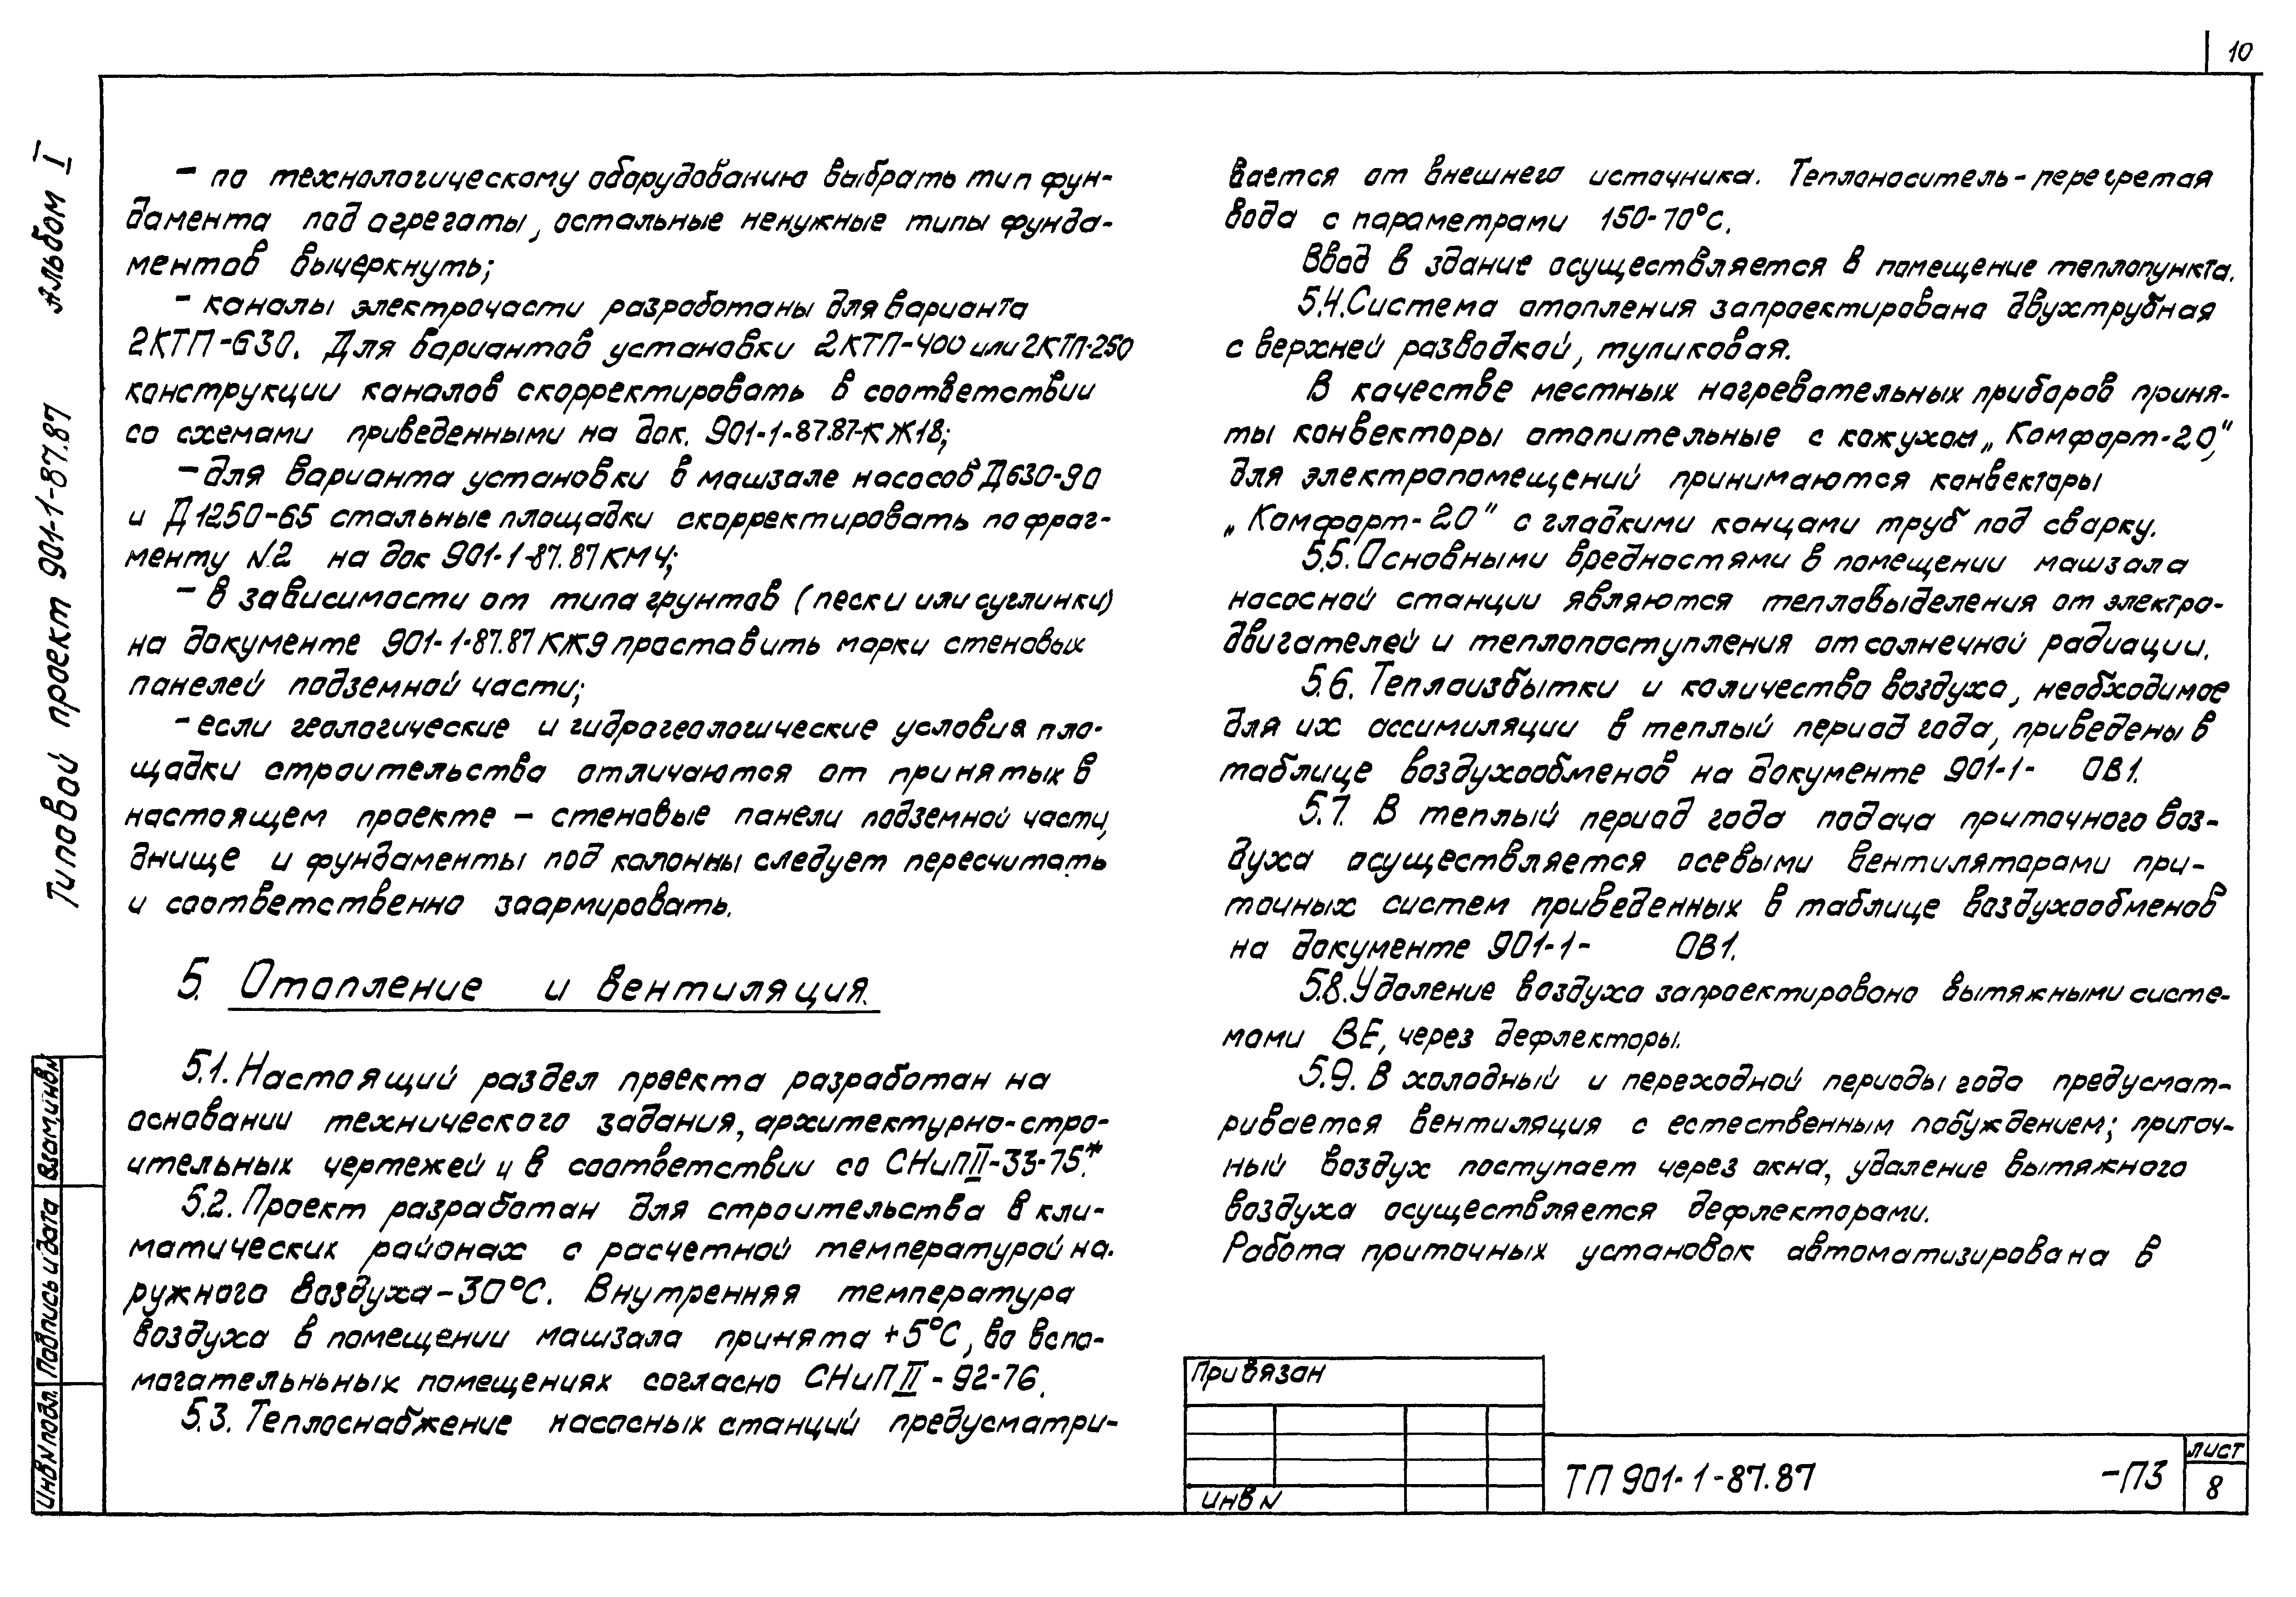 10
Типовой проект 901-1-87.87 Альбом I
– по технологическому оборудованию выбрать тип фун-
дамента под агрегаты, остальные ненужные типы фунда-
ментов вычеркнуть;
– каналы электрочасти разработаны для варианта
2КТП-630. Для вариантов установки 2КТП-400 или 2КТП-250
конструкции каналов скорректировать в соответствии
со схемами приведенными на док. 901-1-87.87-КЖ18;
– для варианта установки в машзале насосов Д630-90
и Д1250-65 стальные площадки скорректировать по фраг-
менту N2 на док 901-1-87.87 КМ4;
– в зависимости от типа грунтов (пески или суглинки)
на документе 901-1-87.87 КЖ9 проставить марки стеновых
панелей подземной части;
– если геологические и гидрогеологические условия пло-
щадки строительства отличаются от принятых в
настоящем проекте – стеновые панели подземной части,
днище и фундаменты под колонны следует пересчитать
и соответственно заармировать.
5. Отопление и вентиляция.
5.1. Настоящий раздел проекта разработан на
основании технического задания, архитектурно-стро-
ительных чертежей и в соответствии со СНиП II-33-75*.
5.2. Проект разработан для строительства в кли-
матических районах с расчетной температурой на-
ружного воздуха –30°С. Внутренняя температура
воздуха в помещении машзала принята +5°С, во вспо-
могательньных помещениях согласно СНиП II-92-76.
5.3. Теплоснабжение насосных станций предусматри-
вается от внешнего источника. Теплоноситель – перегретая
вода с параметрами 150-70°С.
Ввод в здание осуществляется в помещение теплопункта.
5.4. Система отопления запроектирована двухтрубная
с верхней разводкой, тупиковая.
В качестве местных нагревательных приборов приня-
ты конвекторы отопительные с кожухом „Комфорт-20",
для электропомещений принимаются конвекторы
„Комфорт-20" с гладкими концами труб под сварку.
5.5. Основными вредностями в помещении машзала
насосной станции являются тепловыделения от электро-
двигателей и теплопоступления от солнечной радиации.
5.6. Теплоизбытки и количество воздуха, необходимое
для их ассимиляции в теплый период года, приведены в
таблице воздухообменов на документе 901-1- ОВ1.
5.7. В теплый период года подача приточного воз-
духа осуществляется осевыми вентиляторами при-
точных систем приведенных в таблице воздухообменов
на документе 901-1- ОВ1.
5.8. Удаление воздуха запроектировано вытяжными систе-
мами ВЕ, через дефлекторы.
5.9. В холодный и переходной периоды года предусмат-
ривается вентиляция с естественным побуждением; приточ-
ный воздух поступает через окна, удаление вытяжного
воздуха осуществляется дефлекторами.
Работа приточных установок автоматизирована в
Инв N подл. Подпись и дата Взам.инв.N
Привязан
инв N
ТП 901-1-87.87 -ПЗ
лист
8